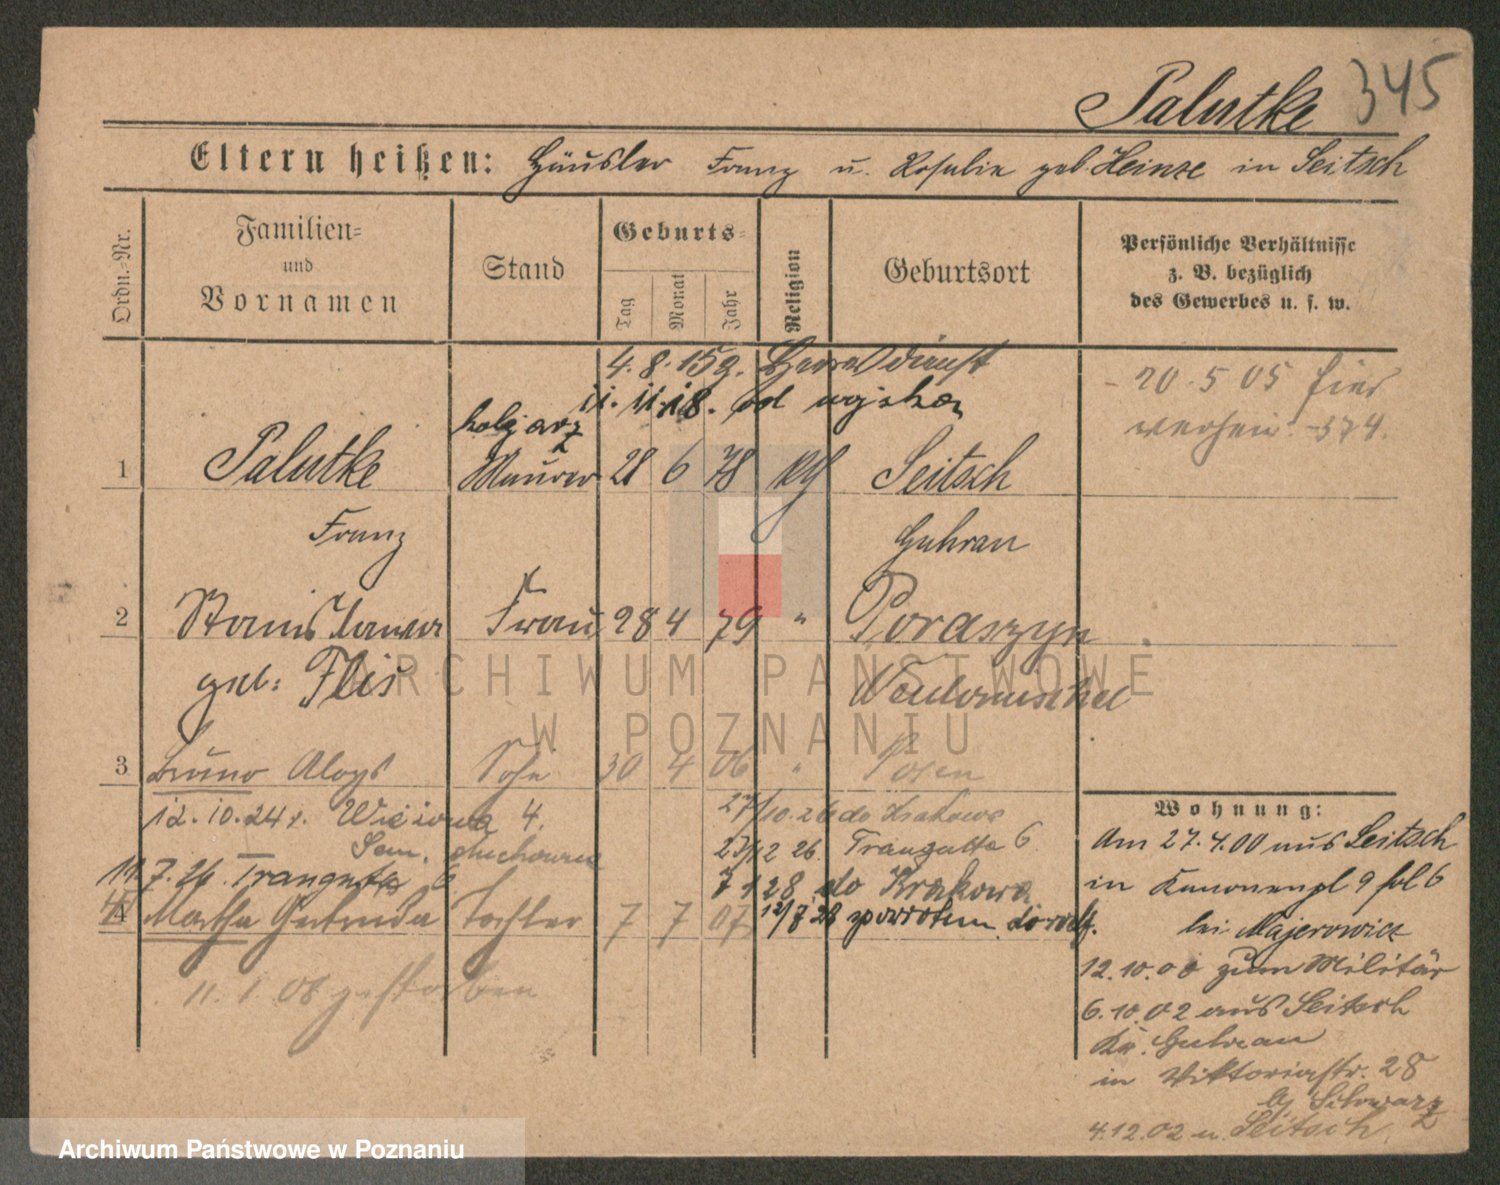 Palutke 345
Eltern heißen: Häusler Franz u. Rosalie geb. Heinze in Seitsch
Ordn.-Nr.
Familien- und Vornamen
Stand
Geburts-
Tag Monat Jahr
Religion
Geburtsort
Persönliche Verhältnisse
z. B. bezüglich
des Gewerbes u. s. w.
4. 8. 15 Heeresdienst
11. 11. 18. od wojska
- 20. 5 05 hier
374.
kolejarz
1 Palutke Maurer 28 6 78 Seitsch
Franz Guhrau
2 Stanislawa Frau 28 4 79 " Poraszyn
geb: Flis Neutomischel
3 Bruno Aloys Sohn 30 4 06 " Posen
12. 10. 24 4.
27/10. 26 do Krakowa
Sem. duchowne
23/12 26. Traugutta 6
11. 7. 26. Traugutta 6
7 1 28. do Krakowa
4 Martha Gertruda Tochter 7 7 07
12/7 28 zpowrotem do
11. 1. 08 gestorben
Wohnung:
Am 27. 4. 00 aus Seitsch
in Kanonenpl 9
bei Majerowicz
12. 10. 00 zum Militär
6. 10. 02 aus Seitsch
Kr. Guhrau
in Viktoriastr. 28
4. 12. 02 n. Seitsch
ARCHIWUM PAŃSTWOWE
W POZNANIU
Archiwum Państwowe w Poznaniu